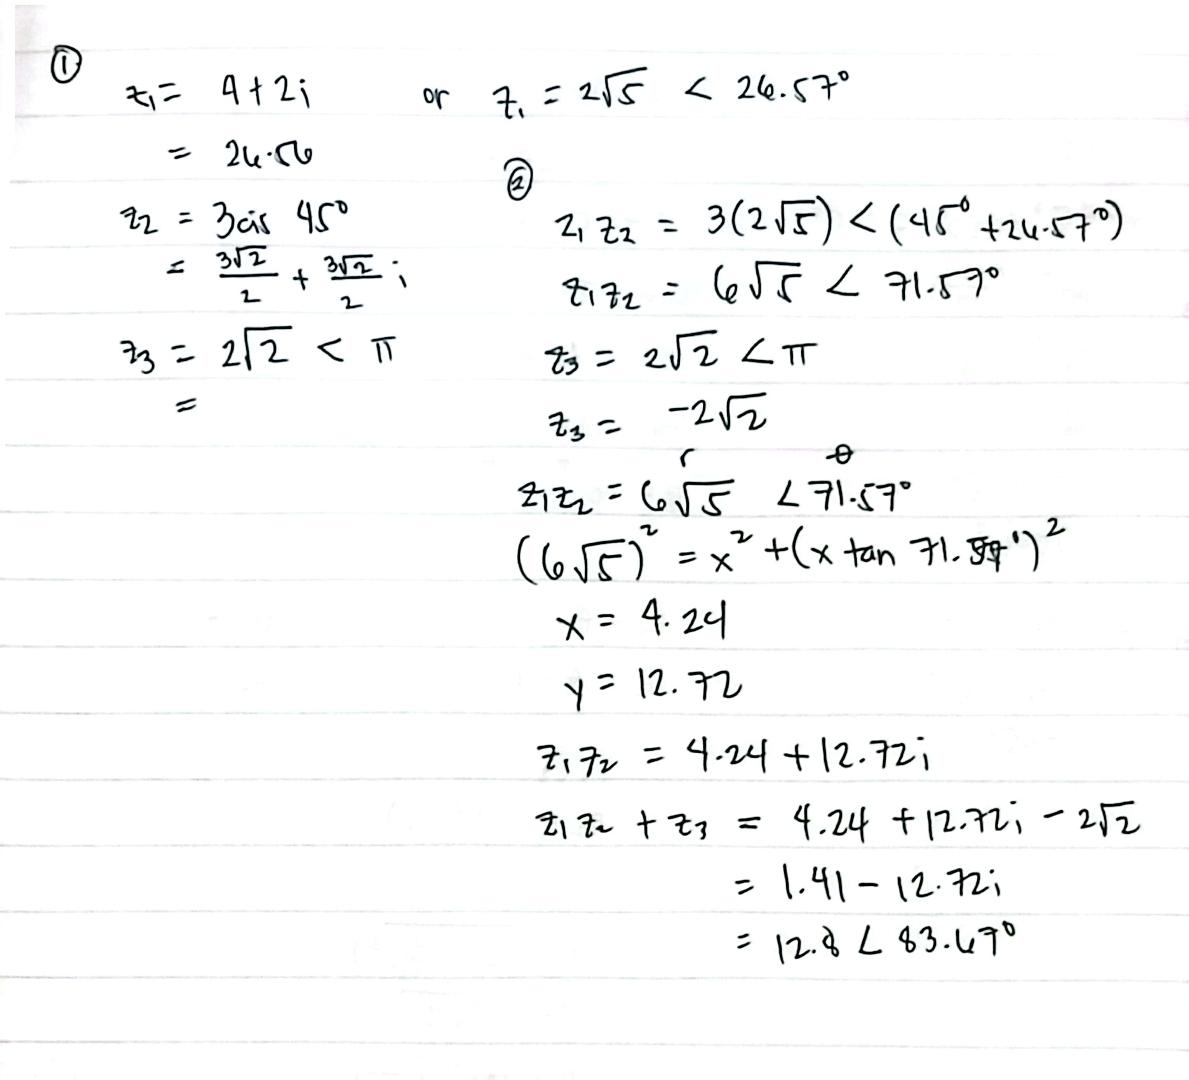 ①
z₁ = 4+2i or z₁ = 2√5 < 26.57°
= 26.56
z₂ = 3cis 45°
= 3√2/2 + 3√2/2 i
z₃ = 2√2 < π
=
②
z₁ z₂ = 3(2√5) < (45° + 26.57°)
z₁z₂ = 6√5 < 71.57°
z₃ = 2√2 < π
z₃ = -2√2
r θ
z₁z₂ = 6√5 ∠ 71.57°
(6√5)² = x² + (x tan 71.57°)²
x = 4.24
y = 12.72
z₁z₂ = 4.24 + 12.72i
z₁z₂ + z₃ = 4.24 + 12.72i - 2√2
= 1.41 - 12.72i
= 12.8 ∠ 83.67°